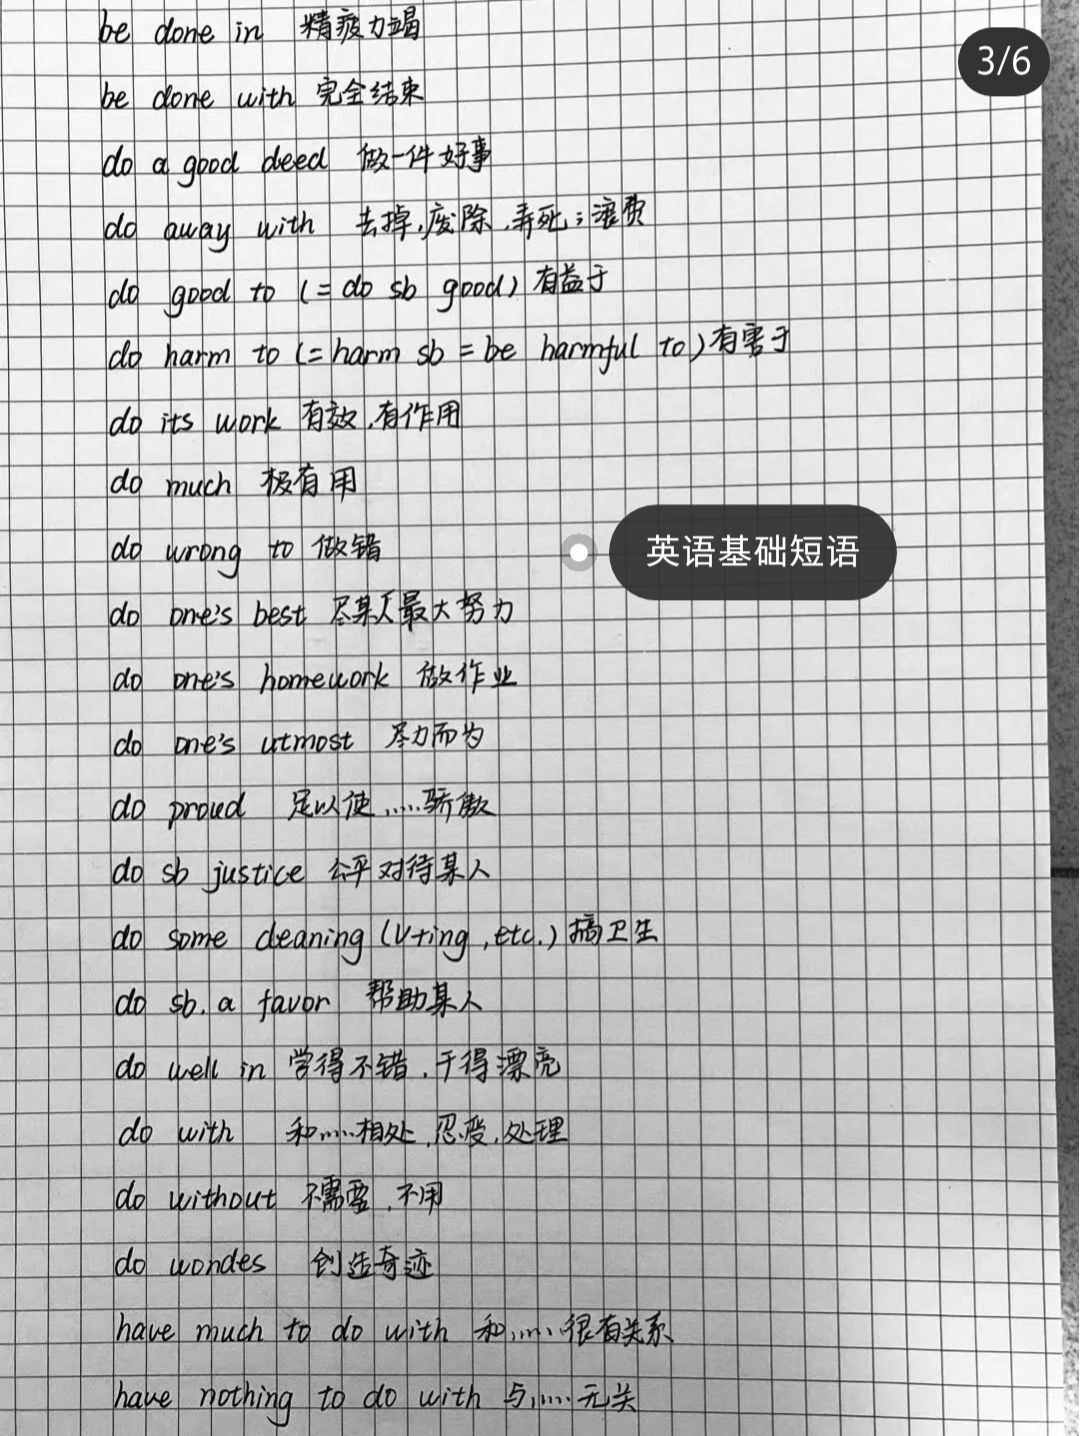 be done in 精疲力竭
3/6
be done with 完全结束
do a good deed 做一件好事
do away with 去掉,废除,弄死;浪费
do good to (=do sb good) 有益于
do harm to (=harm sb =be harmful to) 有害于
do its work 有效,有作用
do much 极有用
do wrong to 做错
英语基础短语
do one's best 尽某人最大努力
do one's homework 做作业
do one's utmost 尽力而为
do proud 足以使……骄傲
do sb justice 公平对待某人
do some cleaning (V+ing,etc.) 搞卫生
do sb. a favor 帮助某人
do well in 学得不错,干得漂亮
do with 和……相处,忍受,处理
do without 不需要,不用
do wondes 创造奇迹
have much to do with 和……很有关系
have nothing to do with 与……无关